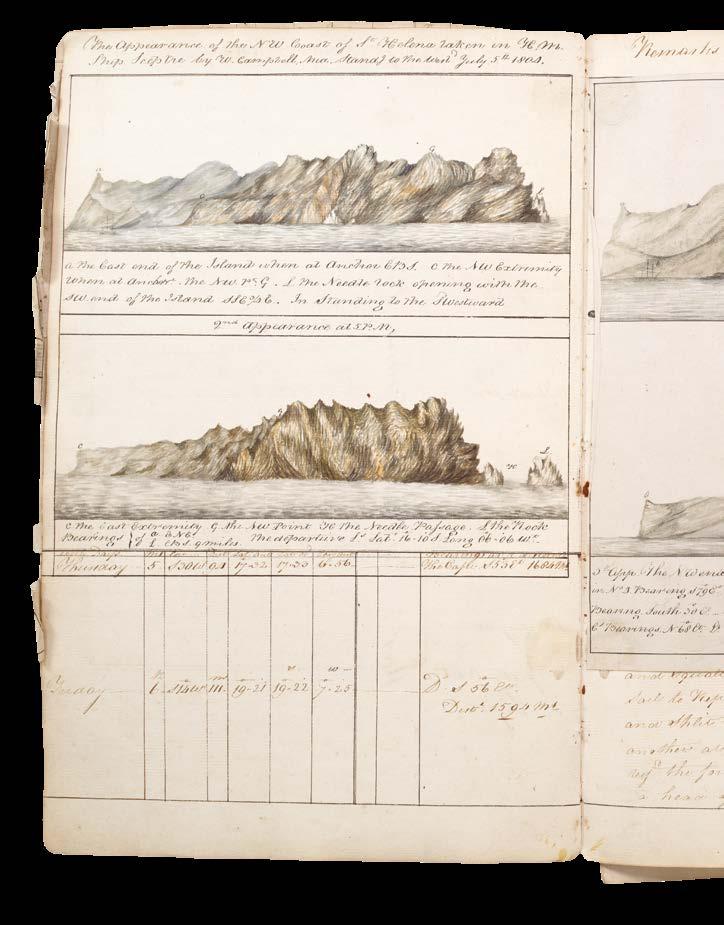 The Appearance of the N.W Coast of St Helena taken in H.M.
Ship Sceptre by W. Campbell, Standg to the West July 5th 1804.
a
C
G
L
a the East end of the Island when at Anchor EBS. C the NW Extremity
when at Anchor. the NW Pt G. L the Needle rock opening with the
SW end of the Island In Standing to the Swestward
2nd Appearance at 5.P.M,
C
g
H
L
C the East Extremity G the NW Point H the Needle Passage. L the Rock
Bearings of 9 miles. The departure Ls Lat. 16-10 S Long 06-06 Wt.
Thursday 5 S30W 94 17-32 17-33 6-56 The Cape S58E
Friday 6 S14W 111 19-21 19-22 7-25 D S 56 Et.
Dist. 1594 Mt
Remarks
G
3d App. The NW end
in No 3. Bearing S79E
Bearing South 30 E
Bearings. N 68 E
sail to
and split
another
the
a head